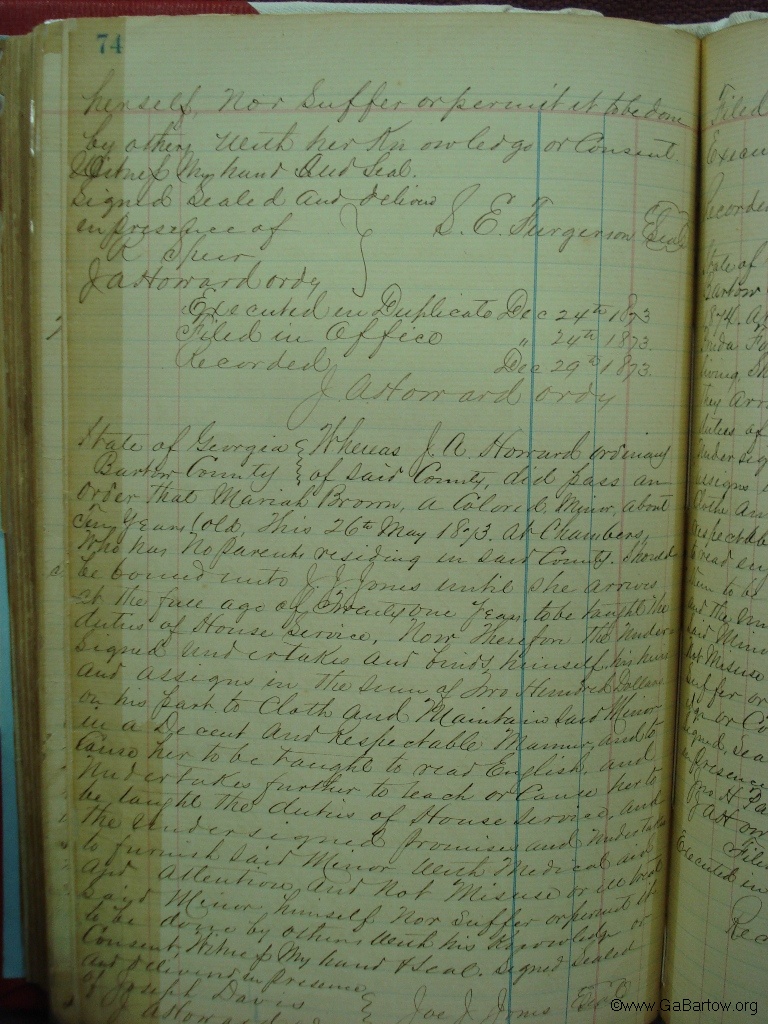 74
herself, Nor Suffer or permit it to be done
by others with her Knowledge or Consent.
Witness My hand And Seal.
Signed Sealed And deliverd
in presence of } S. E. Furgerson Seal
R Speir
J A Howard ordy
Executed in Duplicate Dec 24th 1873
Filed in Office " 24th 1873.
Recorded Dec 29th 1873.
J A Howard ordy
State of Georgia { Whereas J. A. Howard ordinary
Bartow County { of Said County, did pass an
order that Mariah Brown, a Colored, Minor, about
Years old, This 26th May 1873. At Chambers,
Who has No parents residing in Said County. Should
be bound unto J. J. Jones until She arrives
at the full age of Twenty one Years, to be taught the
duties of House Service, Now Therefore the Under
Signed undertakes and binds, himself, his heirs
and assigns in the Sum of Two Hundred Dollars
on his part to Cloth And Maintain Said Minor
in a Decent And Respectable Manner, and to
Cause her to be taught to read English, and
Undertakes further to teach or Cause her to
be taught the duties of House Service, And
the undersigned promises and Undertakes
to furnish Said Minor With Medical aid
And attention, And Not Misuse or ill treat
Said Minor, himself Nor Suffer or permit it
to be done by others With his Knowledge or
Consent, Witness My hand & Seal. Signed Sealed
and delivered in presence
of Joseph Davis { Joe J. Jones Seal
J A Howard
Filed
Recorded
State of
Bartow
1874. A
duties of
undersig
assigns
Cloth An
respectable
to read en
to be
and the un
said Mino
Misuse
Suffer or
or Co
signed, sea
in presence
Jno. H.
J A How
Filed
Executed in
Rec
©www.GaBartow.org